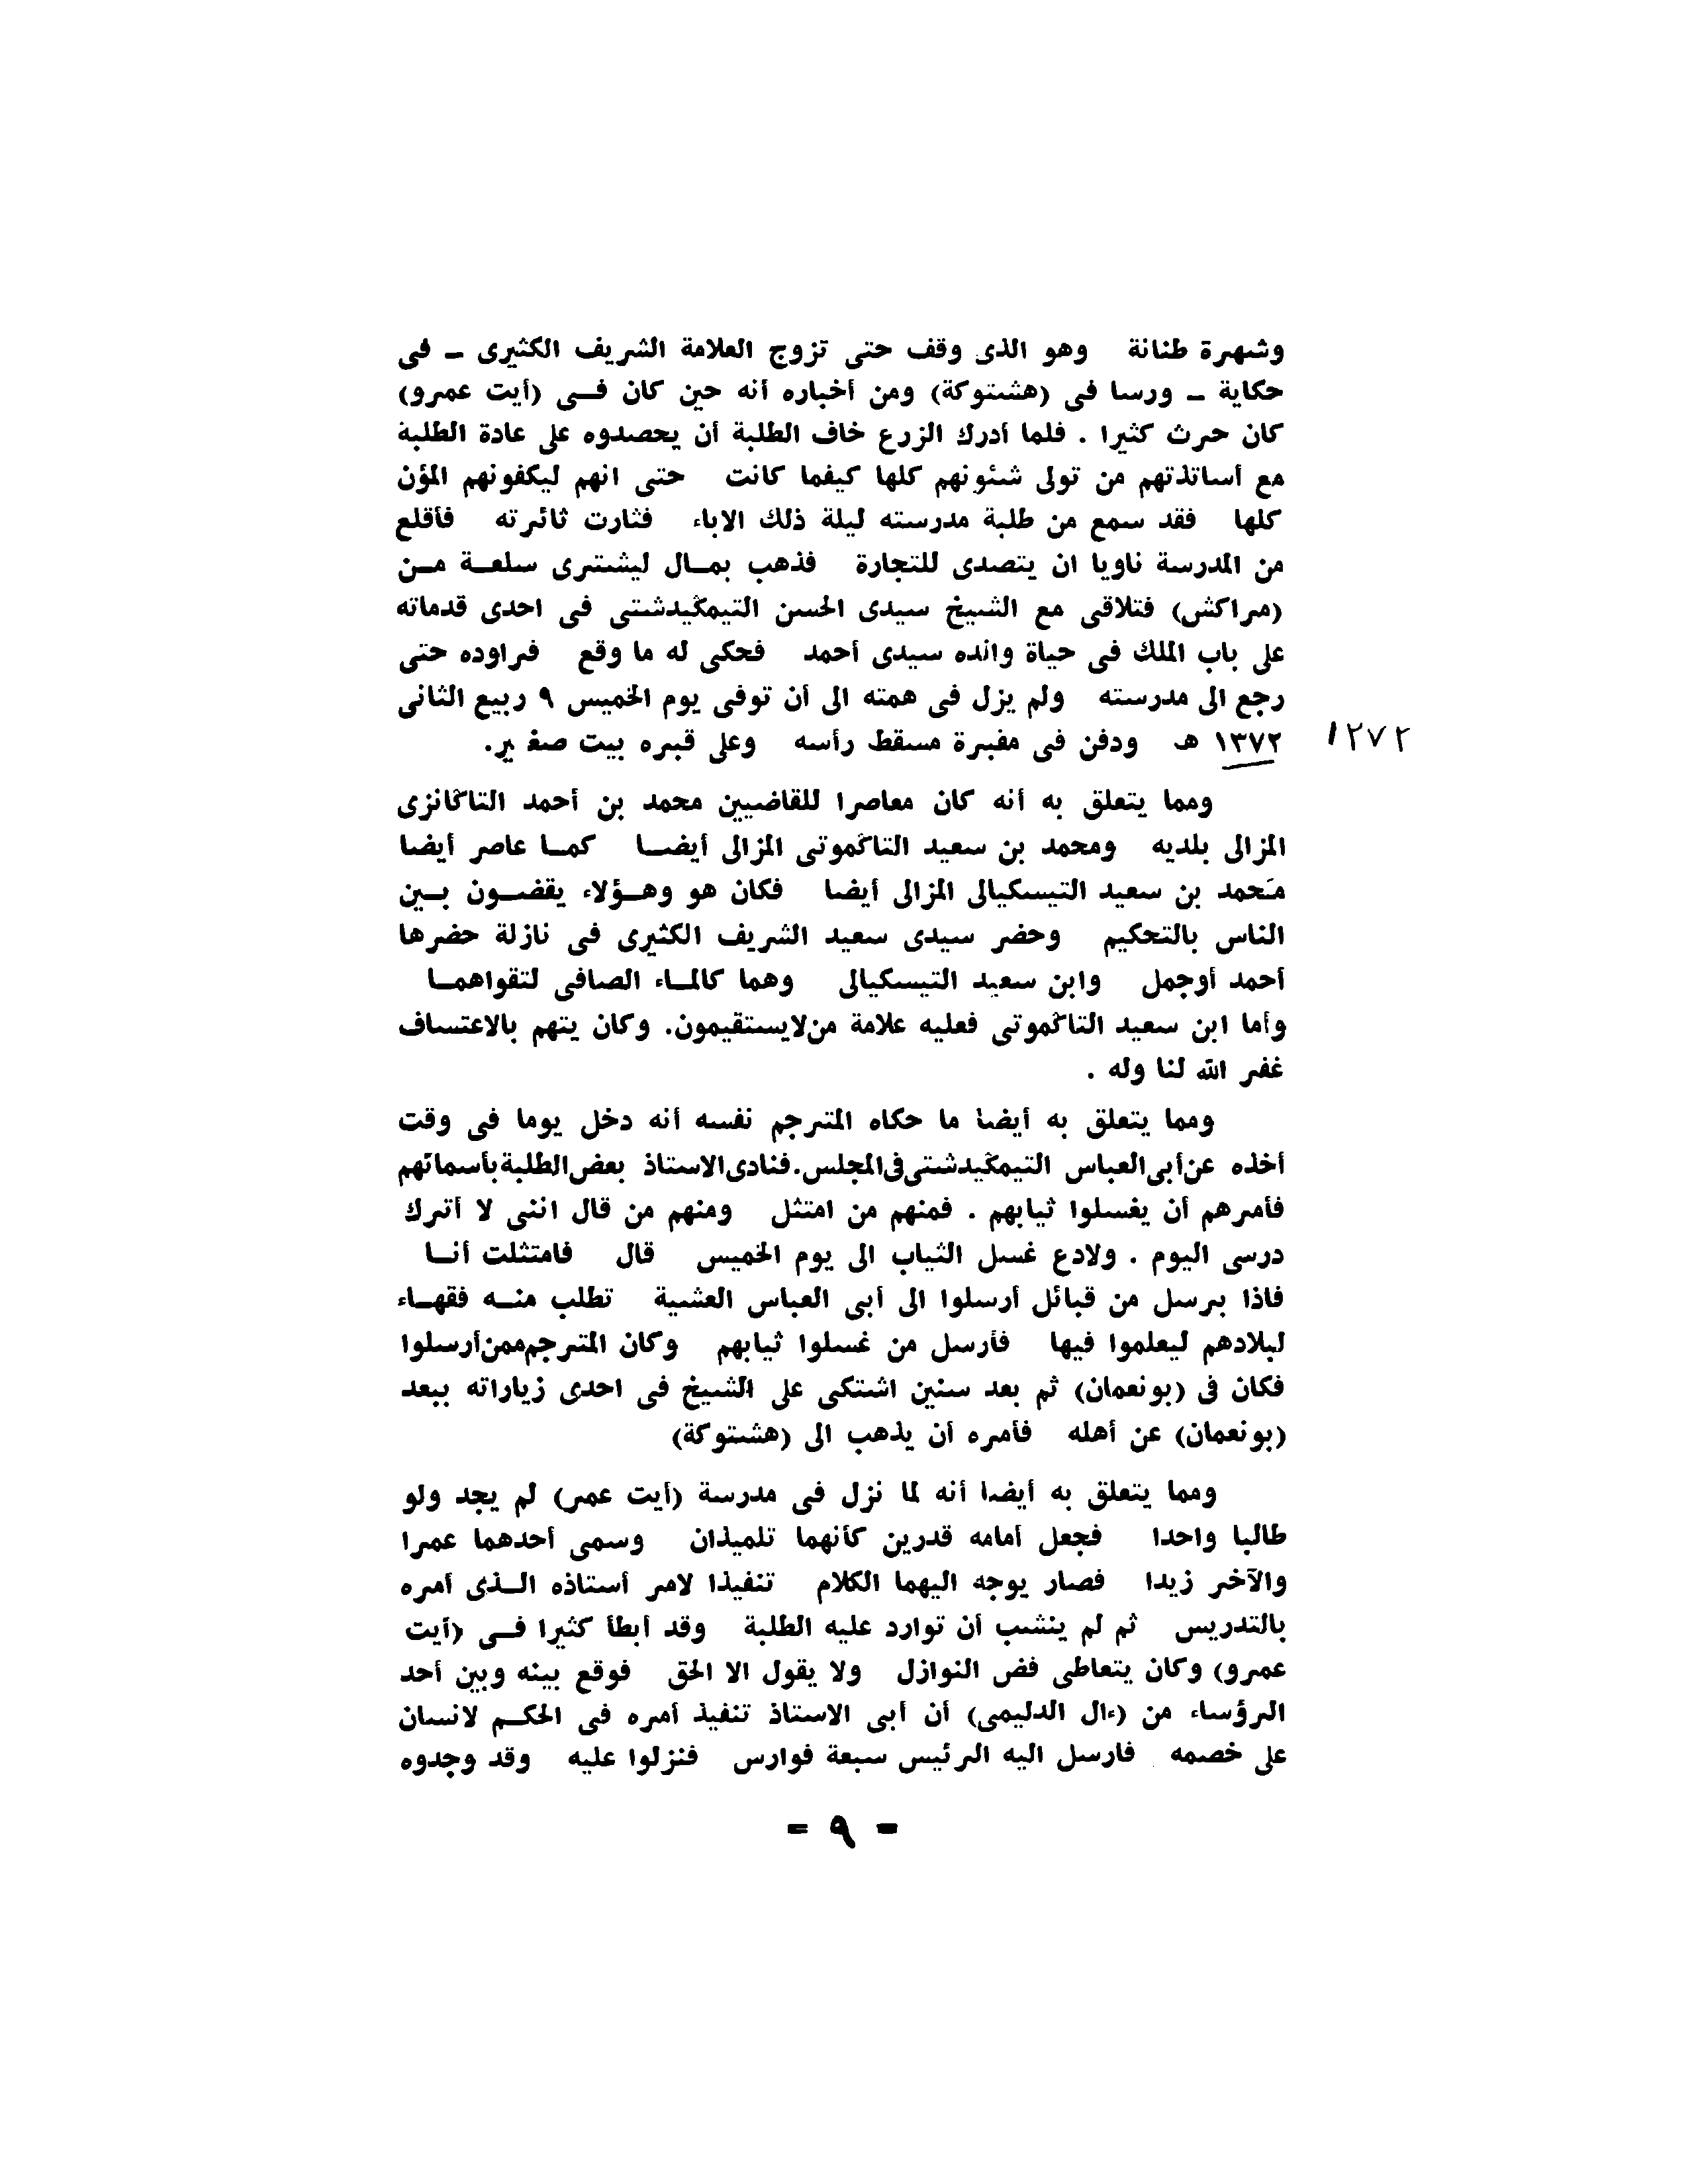 وشهرة طنانة وهو الذى وقف حتى تزوج العلامة الشريف الكثيرى ـ فى
حكاية ـ ورسا فى (هشتوكة) ومن أخباره أنه حين كان فــى (أيت عمرو)
كان حرث كثيرا . فلما أدرك الزرع خاف الطلبة أن يحصدوه على عادة الطلبة
مع أساتذتهم من تولى شئونهم كلها كيفما كانت حتى انهم ليكفونهم المؤن
كلها فقد سمع من طلبة مدرسته ليلة ذلك الاباء فثارت ثائرته فأقلع
من المدرسة ناويا ان يتصدى للتجارة فذهب بمــال ليشترى سلعــة مــن
(مراكش) فتلاقى مع الشيخ سيدى الحسن التيمڭيدشتى فى احدى قدماته
على باب الملك فى حياة والده سيدى أحمد فحكى له ما وقع فراوده حتى
رجع الى مدرسته ولم يزل فى همته الى أن توفى يوم الخميس ٩ ربيع الثانى
١٣٧٢ هـ ودفن فى مقبرة مسقط رأسه وعلى قبره بيت صغير.
١٢٧٢
ومما يتعلق به أنه كان معاصرا للقاضيين محمد بن أحمد التاڭانزى
المزالى بلديه ومحمد بن سعيد التاڭموتى المزالى أيضــا كمــا عاصر أيضا
مَحمد بن سعيد التيسكيالى المزالى أيضا فكان هو وهــؤلاء يقضــون بــين
الناس بالتحكيم وحضر سيدى سعيد الشريف الكثيرى فى نازلة حضرها
أحمد أوجمل وابن سعيد التيسكيالى وهما كالمــاء الصافى لتقواهمــا
وأما ابن سعيد التاڭموتى فعليه علامة من لايستقيمون. وكان يتهم بالاعتساف
غفر الله لنا وله .
ومما يتعلق به أيضا ما حكاه المترجم نفسه أنه دخل يوما فى وقت
أخذه عن أبى العباس التيمڭيدشتى فى المجلس. فنادى الاستاذ بعض الطلبة بأسمائهم
فأمرهم أن يغسلوا ثيابهم . فمنهم من امتثل ومنهم من قال اننى لا أترك
درسى اليوم . ولادع غسل الثياب الى يوم الخميس قال فامتثلت أنــا
فاذا برسل من قبائل أرسلوا الى أبى العباس العشية تطلب منــه فقهــاء
لبلادهم ليعلموا فيها فأرسل من غسلوا ثيابهم وكان المترجم ممن أرسلوا
فكان فى (بونعمان) ثم بعد سنين اشتكى على الشيخ فى احدى زياراته ببعد
(بونعمان) عن أهله فأمره أن يذهب الى (هشتوكة)
ومما يتعلق به أيضا أنه لما نزل فى مدرسة (أيت عمر) لم يجد ولو
طالبا واحدا فجعل أمامه قدرين كأنهما تلميذان وسمى أحدهما عمرا
والآخر زيدا فصار يوجه اليهما الكلام تنفيذا لامر أستاذه الــذى أمره
بالتدريس ثم لم ينشب أن توارد عليه الطلبة وقد أبطأ كثيرا فــى (أيت
عمرو) وكان يتعاطى فض النوازل ولا يقول الا الحق فوقع بينه وبين أحد
الرؤساء من (ءال الدليمى) أن أبى الاستاذ تنفيذ أمره فى الحكــم لانسان
على خصمه فارسل اليه الرئيس سبعة فوارس فنزلوا عليه وقد وجدوه
- ٩ -